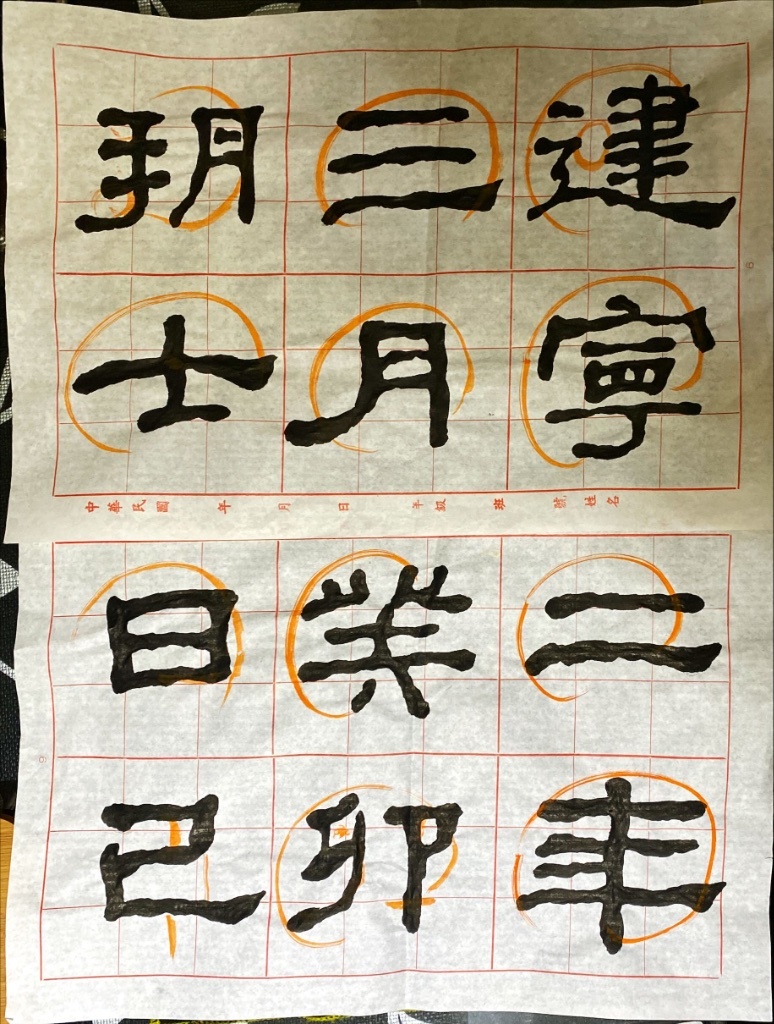 建寧二年
三月癸卯
朔七日己
中華民國 年 月 日 年級 班 號 姓名